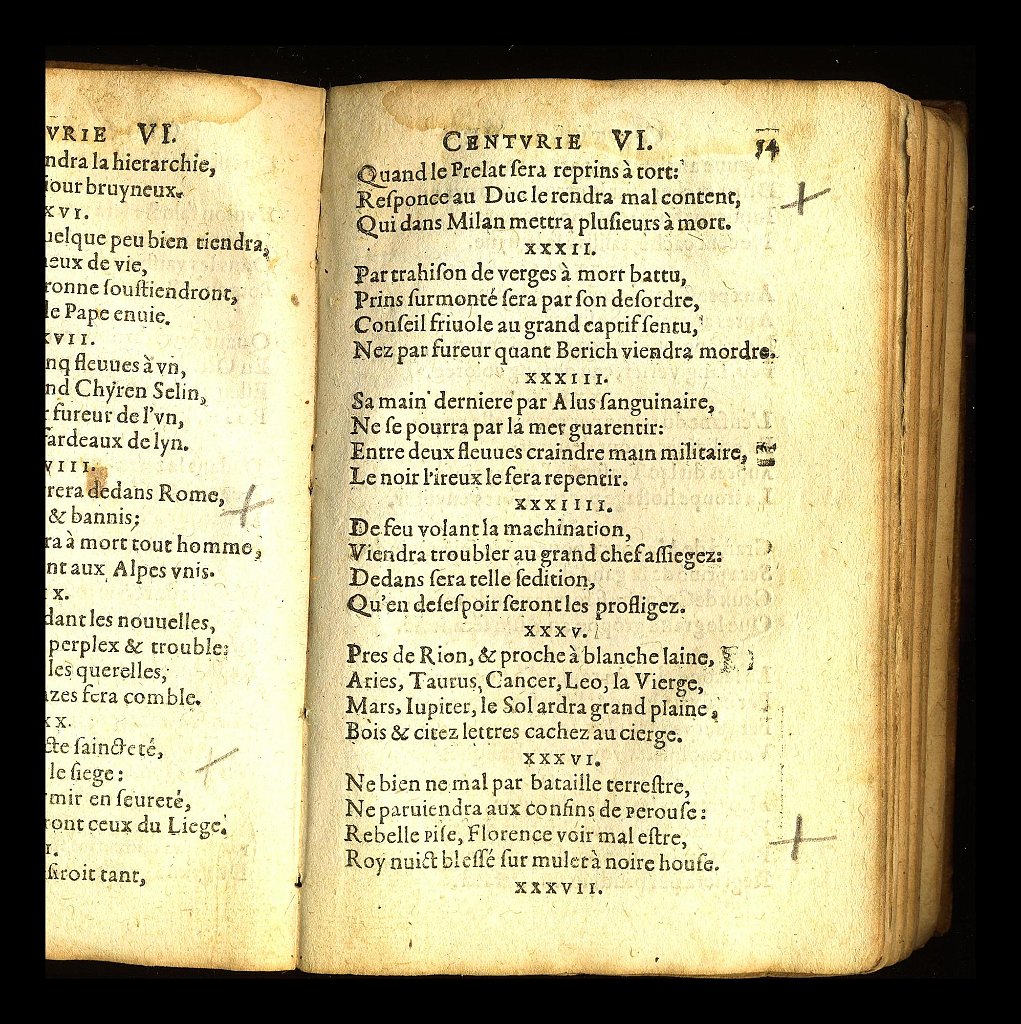 VRIE VI.
ndra la hierarchie,
iour bruyneux.
XVI.
uelque peu bien tiendra,
eux de vie,
ronne souſtiendront,
le Pape enuie.
XVII.
nq fleuues à vn,
nd Chyren Selin,
fureur de l'vn,
fardeaux de lyn.
VIII.
rera dedans Rome,
& bannis;
ra à mort tout homme,
nt aux Alpes vnis.
X.
dant les nouuelles,
perplex & trouble:
les querelles,
zes ſera comble.
XX.
cte ſaincteté,
le ſiege:
mir en ſeureté,
ront ceux du Liege.
I.
ſiroit tant,
CENTVRIE VI. 54
Quand le Prelat ſera reprins à tort:
Reſponce au Duc le rendra mal content,
Qui dans Milan mettra pluſieurs à mort.
XXXII.
Par trahiſon de verges à mort battu,
Prins ſurmonté ſera par ſon deſordre,
Conſeil friuole au grand captif ſentu,
Nez par fureur quant Berich viendra mordre.
XXXIII.
Sa main derniere par Alus ſanguinaire,
Ne ſe pourra par la mer guarentir:
Entre deux fleuues craindre main militaire,
Le noir l'ireux le fera repentir.
XXXIIII.
De feu volant la machination,
Viendra troubler au grand chef aſſiegez:
Dedans ſera telle ſedition,
Qu'en deſeſpoir ſeront les profligez.
XXXV.
Pres de Rion, & proche à blanche laine,
Aries, Taurus, Cancer, Leo, la Vierge,
Mars, Iupiter, le Sol ardra grand plaine,
Bois & citez lettres cachez au cierge.
XXXVI.
Ne bien ne mal par bataille terreſtre,
Ne paruiendra aux confins de perouſe:
Rebelle piſe, Florence voir mal eſtre,
Roy nuict bleſſé ſur mulet à noire houſe.
XXXVII.